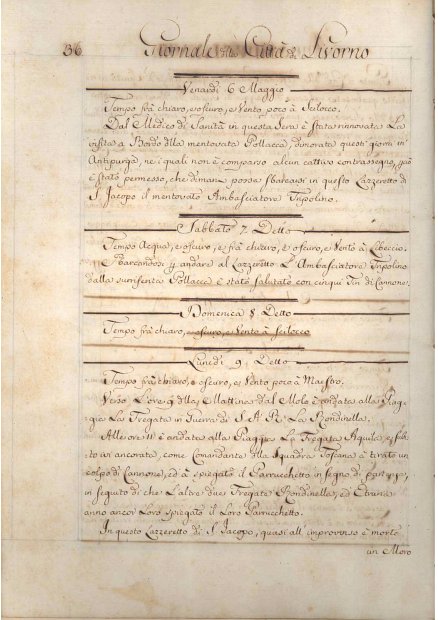 36 Giornale della Città di Livorno
Venardì 6 Maggio
Tempo frà chiaro, e oscuro, e Vento poco à Scilocco.
Dal Medico di Sanità in questa Sera è stata rinnovata La
visita a Bordo della mentovata Pollacca, dimorata questi giorni in
Antipurga, ne i quali non è comparso alcun cattivo contrassegno, però
è stato permesso, che dimane possa sbarcarsi in questo Lazzeretto di
S. Jacopo il mentovato Ambasciatore Tripolino.
Sabbato 7. Detto
Tempo Acqua, e oscuro, e frà chiaro, e oscuro, e Vento à Libeccio.
Sbarcandosi p andare al Lazzeretto L'Ambasciatore Tripolino
dalla sumsenta Pollacca è stato salutato con cinque Tiri di Cannone.
Domenica 8 Detto
Tempo frà chiaro, e oscuro, e Vento à Scilocco
Lunedì 9. Detto
Tempo frà chiaro, e oscuro, e Vento poco à Maestro.
Verso L'ore 9 della Mattina dal Molo è andata alla Piag-
gia La Fregata in Guerra di S. A. R. La Rondinella.
Alle ore 11 è andata alla Piaggia La Fregata Aquila, e subi-
to ivi ancorata, come Comandante della Squadra Toscana à tirato un
colpo di Cannone, ed à spiegato il Parrucchetto in segno di partenza,
in seguito di che L'altre due Fregate Rondinella, ed Etruria
anno ancor Loro spiegato il Loro Parrucchetto.
In questo Lazzeretto di S. Jacopo, quasi all'improvviso è morto
un Moro